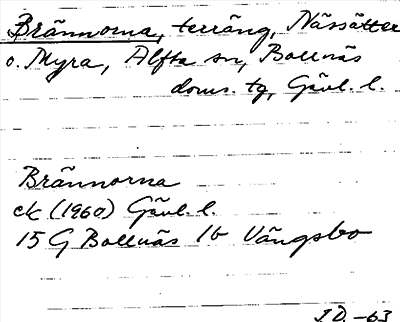 Brännorna, terräng, Nässätter
o. Myra, Alfta sn, Bollnäs
doms. tg, Gävl. l.
Brännorna
ek (1960) Gävl. l.
15 G Bollnäs 1b Vängsbo
ID. -63